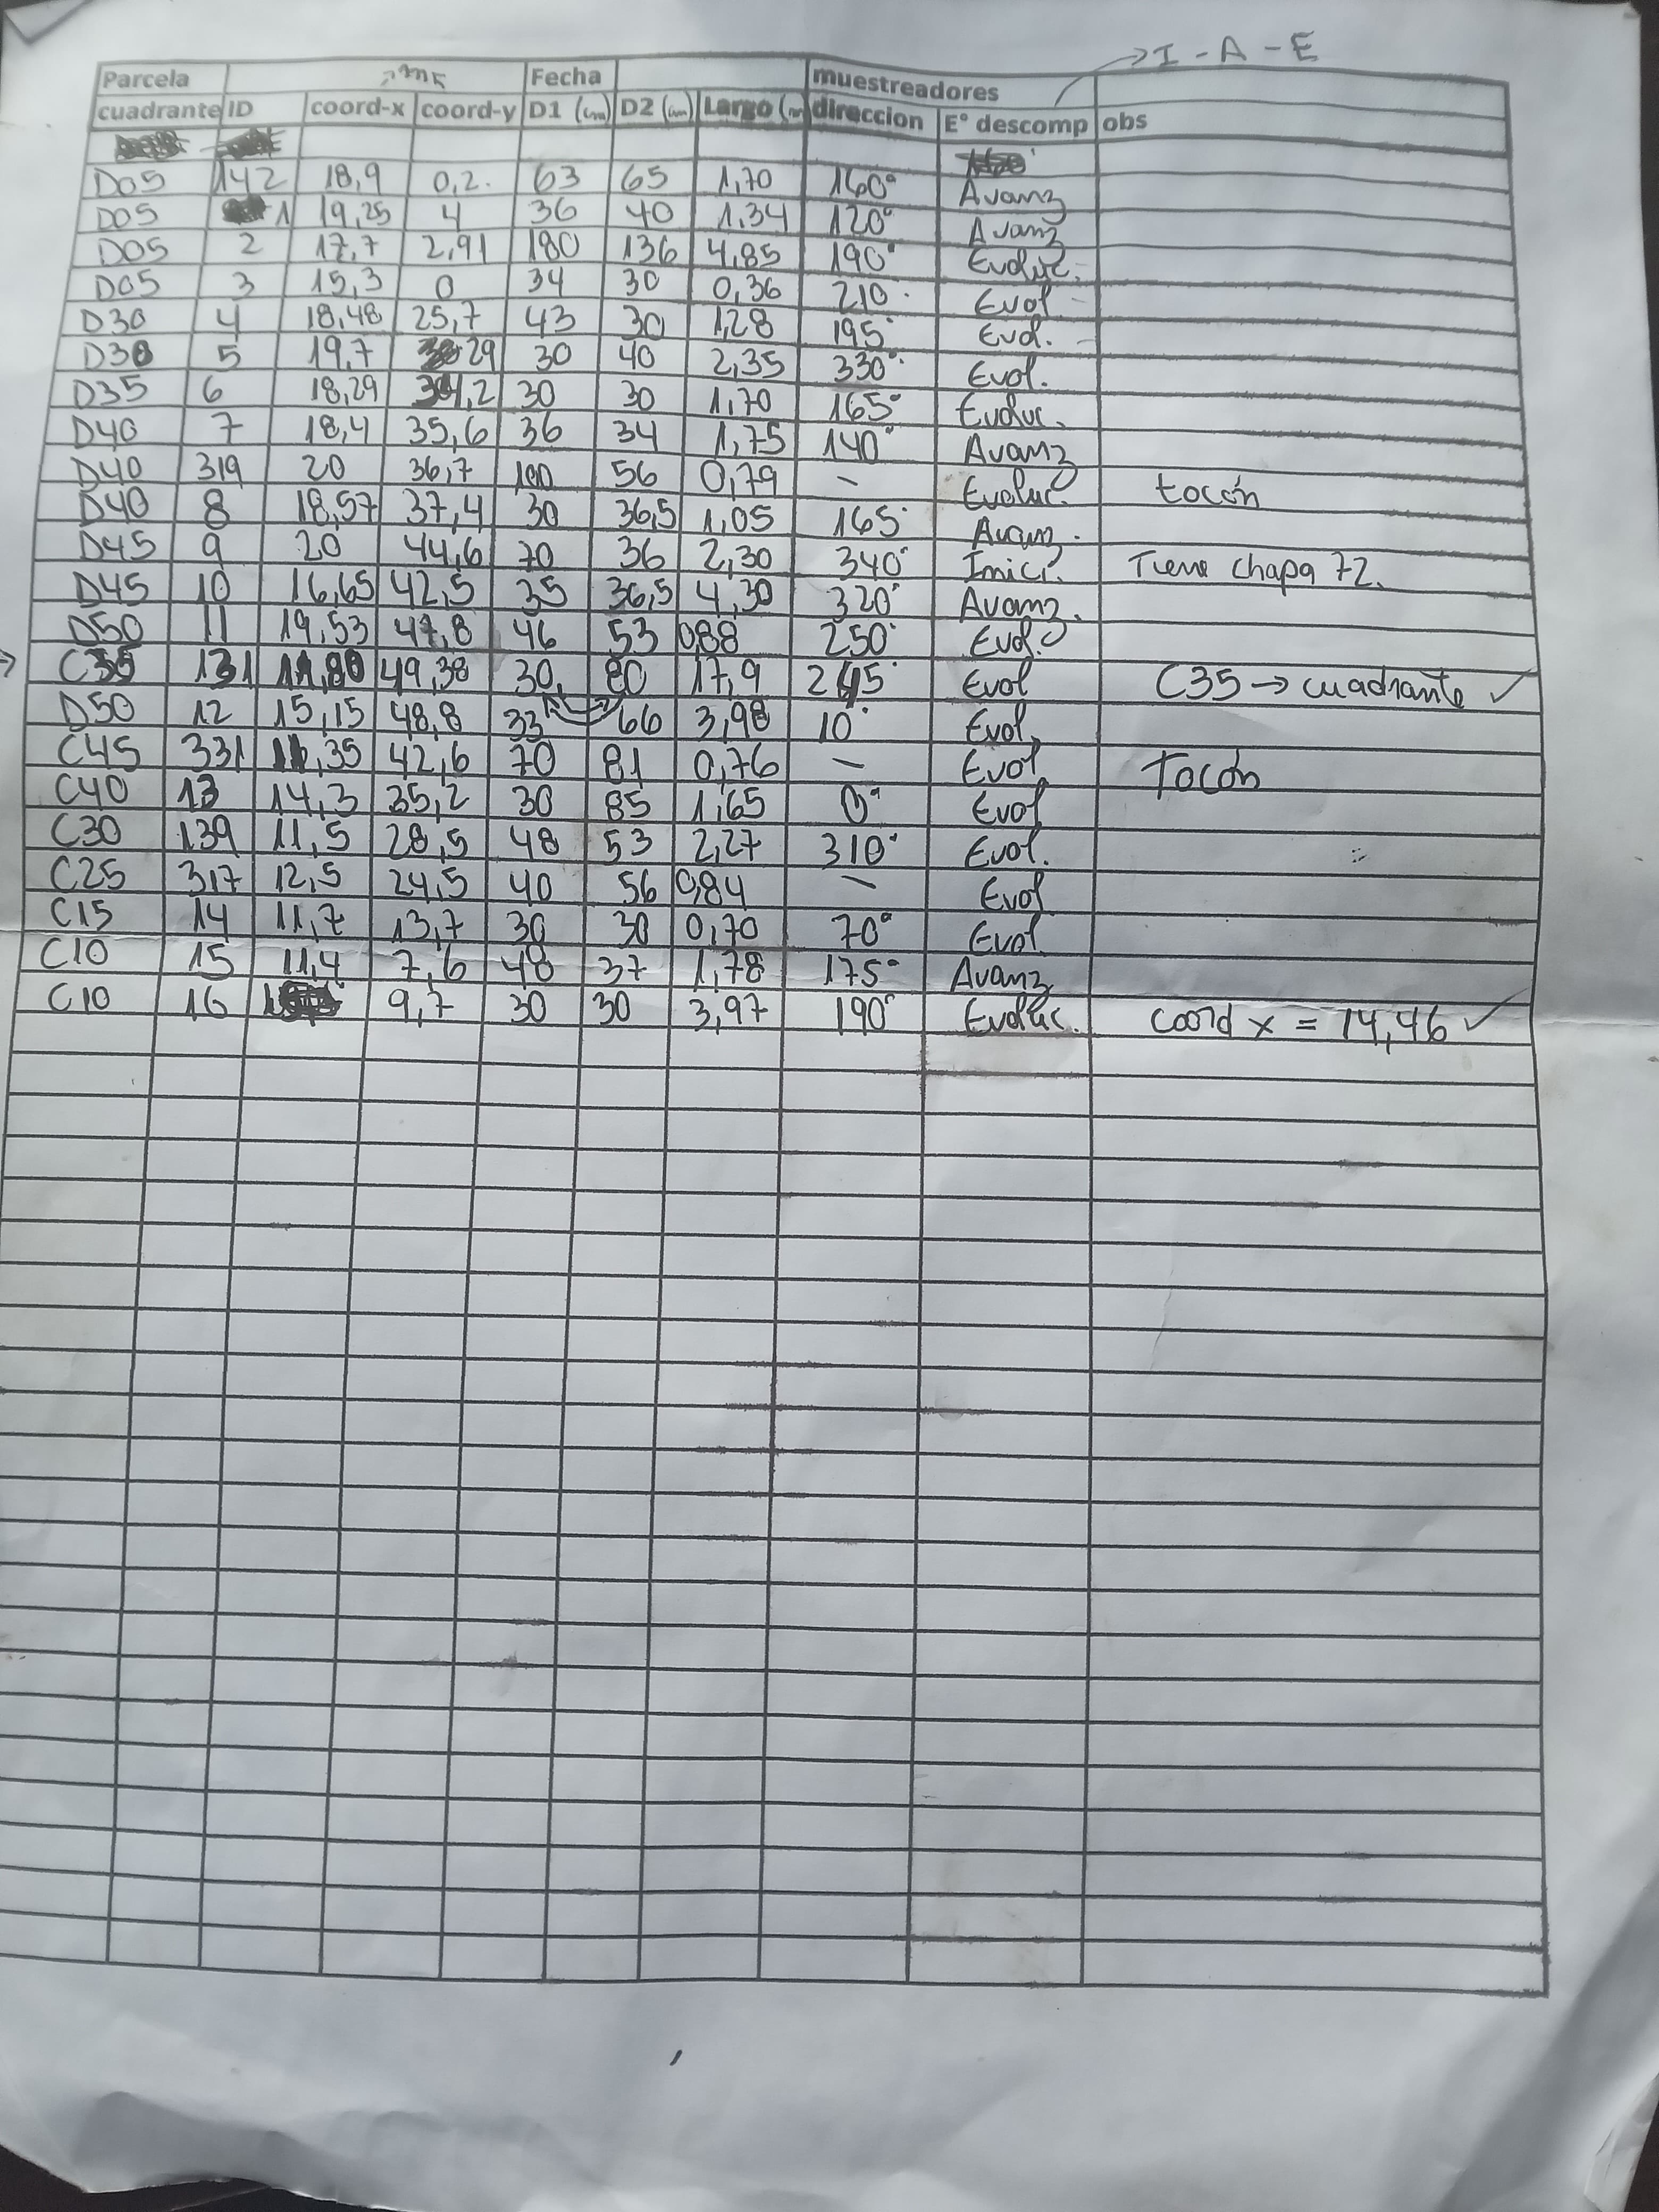 → I - A - E
Parcela → m Fecha muestreadores
cuadrante ID coord-x coord-y D1 (cm) D2 (cm) Largo (m direccion E° descomp obs
D05 142 18,9 0,2. 63 65 1,70 160° Avanz
D05 1 19,25 4 36 40 1,34 120° Avanz
D05 2 17,7 2,91 180 136 4,85 190° Evoluc.
D05 3 15,3 0 34 30 0,36 210° Evol
D30 4 18,48 25,7 43 30 1,28 195° Evol.
D30 5 19,7 29 30 40 2,35 330° Evol.
D35 6 18,29 ,2 30 30 1,70 165° Evoluc.
D40 7 18,4 35,6 36 34 1,75 140° Avanz
D40 319 20 36,7 100 56 0,79 – Evoluc. tocón
D40 8 18,57 37,4 30 36,5 1,05 165° Avanz.
D45 9 20 44,6 70 36 2,30 340° Inici. Tiene chapa 72.
D45 10 16,65 42,5 35 36,5 4,30 320° Avanz.
D50 11 19,53 47,8 46 53 0,88 250° Evol.
→ C35 131 11,80 49,38 30 80 17,9 245° Evol C35 → cuadrante ✓
D50 12 15,15 48,8 33 66 3,98 10° Evol
C45 331 11,35 42,6 70 81 0,76 – Evol Tocón
C40 13 14,3 35,2 30 85 1,65 0° Evol
C30 139 11,5 28,5 48 53 2,27 310° Evol.
C25 317 12,5 24,5 40 56 0,84 – Evol
C15 14 11,7 13,7 30 30 0,70 70° Evol
C10 15 11,4 7,6 48 37 1,78 175° Avanz
C10 16 9,7 30 30 3,97 190° Evoluc. coord x = 14,46 ✓